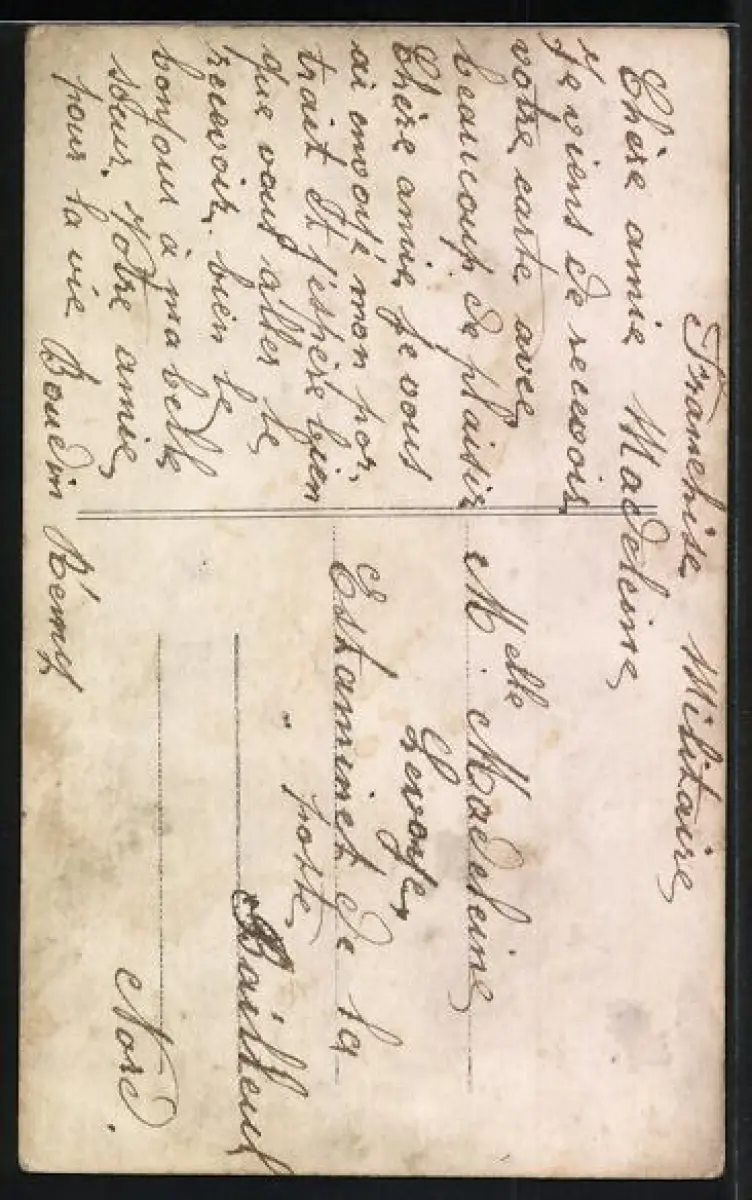 Franchise Militaire
Chère amie Madeleine
Je viens de recevoir
votre carte avec
beaucoup de plaisir
Chère amie je vous
ai envoyé mon por,
trait Et j'espère bien
que vous aller le
recevoir. bien le
bonjour à ma belle
sœur. Votre amie
pour la vie Boudin Rémy
Melle Madeleine
Estaminet de la
poste
Bailleul
Nord.